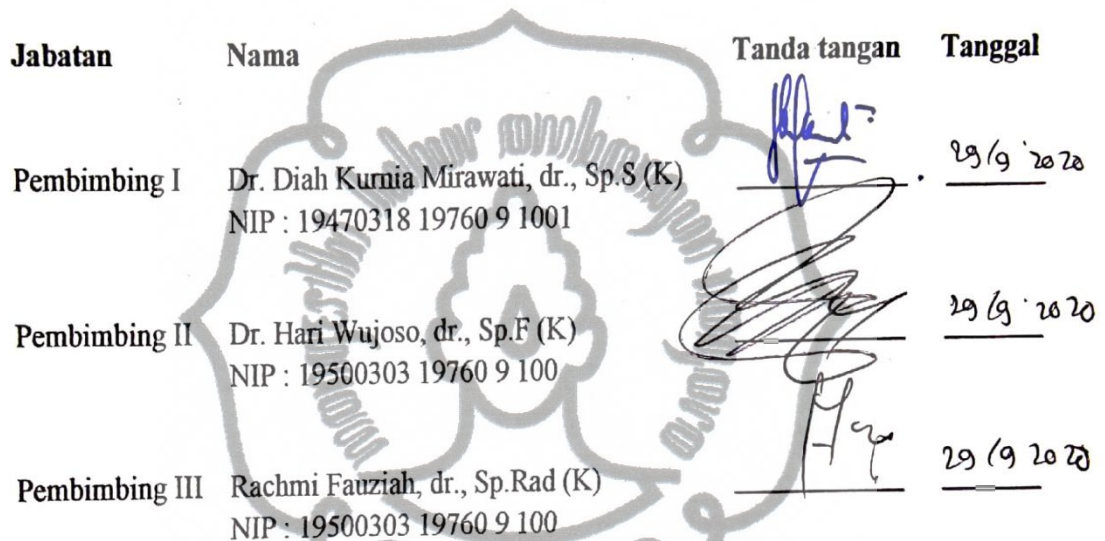 Jabatan Nama Tanda tangan Tanggal
Pembimbing I Dr. Diah Kurnia Mirawati, dr., Sp.S (K) 29/9 '2020
NIP : 19470318 19760 9 1001
Pembimbing II Dr. Hari Wujoso, dr., Sp.F (K) 29/9 '2020
NIP : 19500303 19760 9 100
Pembimbing III Rachmi Fauziah, dr., Sp.Rad (K) 29/9 2020
NIP : 19500303 19760 9 100